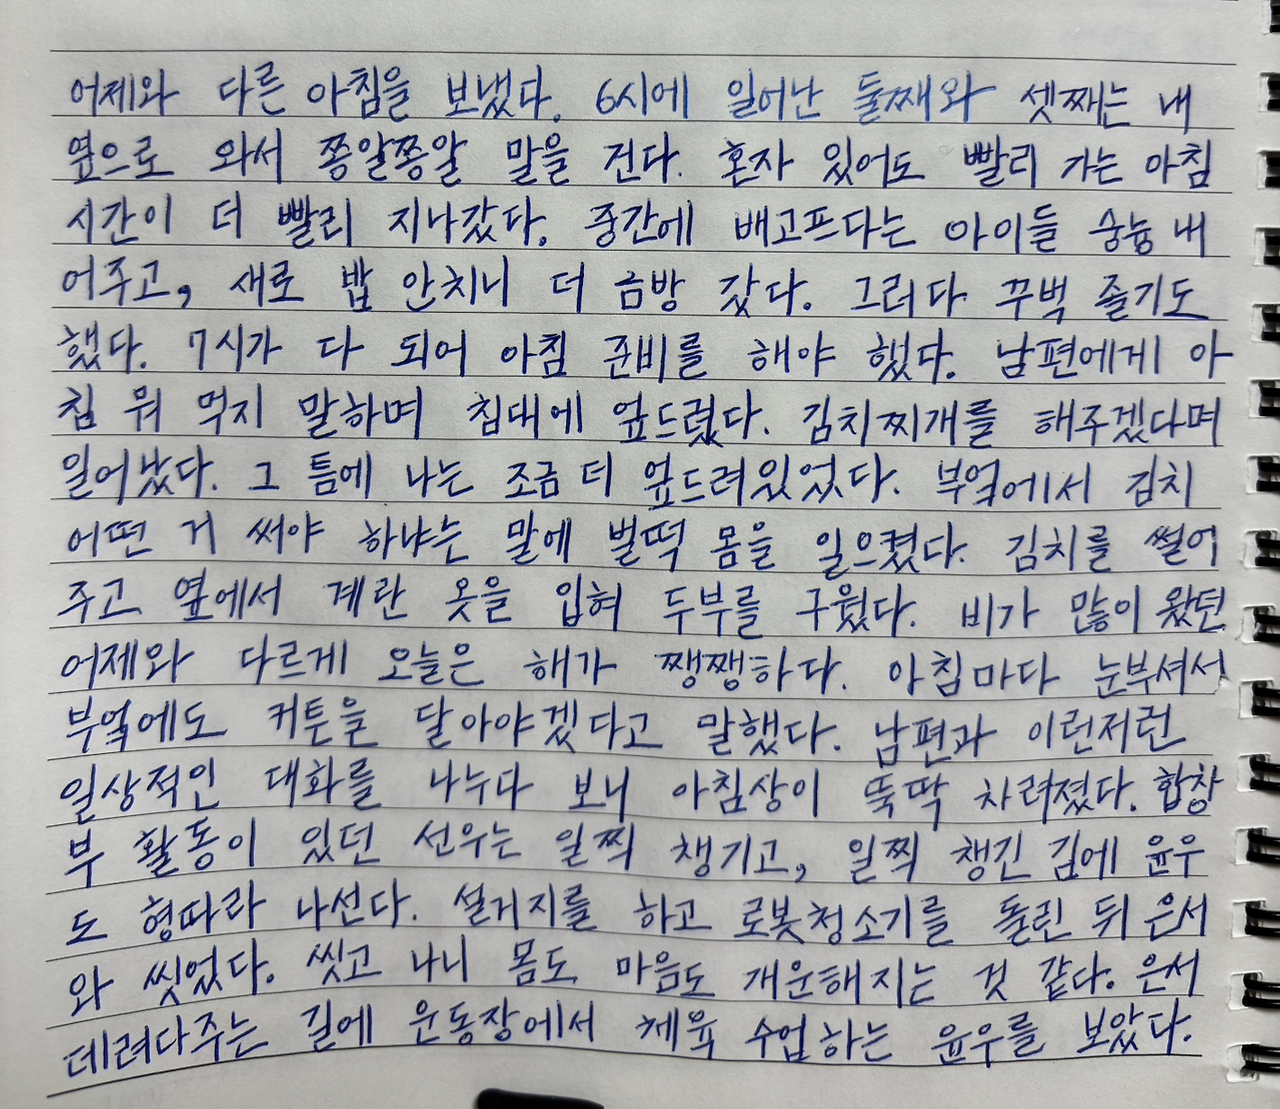 어제와 다른 아침을 보냈다. 6시에 일어난 둘째와 셋째는 내
옆으로 와서 쫑알쫑알 말을 건다. 혼자 있어도 빨리 가는 아침
시간이 더 빨리 지나갔다. 중간에 배고프다는 아이들 숭늉 내
어주고, 새로 밥 안치니 더 금방 갔다. 그러다 꾸벅 졸기도
했다. 7시가 다 되어 아침 준비를 해야 했다. 남편에게 아
침 뭐 먹지 말하며 침대에 엎드렸다. 김치찌개를 해주겠다며
일어났다. 그 틈에 나는 조금 더 엎드려있었다. 부엌에서 김치
어떤 거 써야 하냐는 말에 벌떡 몸을 일으켰다. 김치를 썰어
주고 옆에서 계란 옷을 입혀 두부를 구웠다. 비가 많이 왔던
어제와 다르게 오늘은 해가 쨍쨍하다. 아침마다 눈부셔서
부엌에도 커튼을 달아야겠다고 말했다. 남편과 이런저런
일상적인 대화를 나누다 보니 아침상이 뚝딱 차려졌다. 합창
부 활동이 있던 선우는 일찍 챙기고, 일찍 챙긴 김에 윤우
도 형따라 나선다. 설거지를 하고 로봇청소기를 돌린 뒤 은서
와 씻었다. 씻고 나니 몸도 마음도 개운해지는 것 같다. 은서
데려다주는 길에 운동장에서 체육 수업하는 윤우를 보았다.